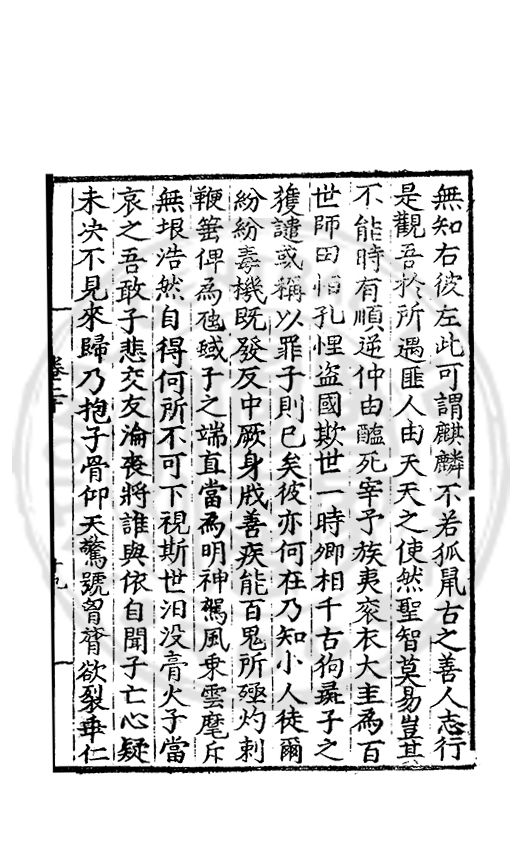 無知右彼左此可謂麒麟不若狐鼠古之善人志行
是觀吾於所遇匪人由天天之使然聖智莫易豈其
不能時有順逆仲由醢死宰予族夷袞衣大圭爲百
世師田恒孔悝盗國欺世一時卿相千古狗彘子之
獲譴或稱以罪子則已矣彼亦何在乃知小人徒爾
紛紛毒機既發反中厥身戕善疾能百鬼所殛灼刺
鞭箠俾爲虺蜮子之端直當爲明神駕風乘雲麾斥
無垠浩然自得何所不可下視斯世汨没膏火子當
哀之吾敢子悲交友淪喪將誰與依自聞子亡心疑
未决不見來歸乃抱子骨仰天驚號胷膂欲裂乖仁
卷二十
十九